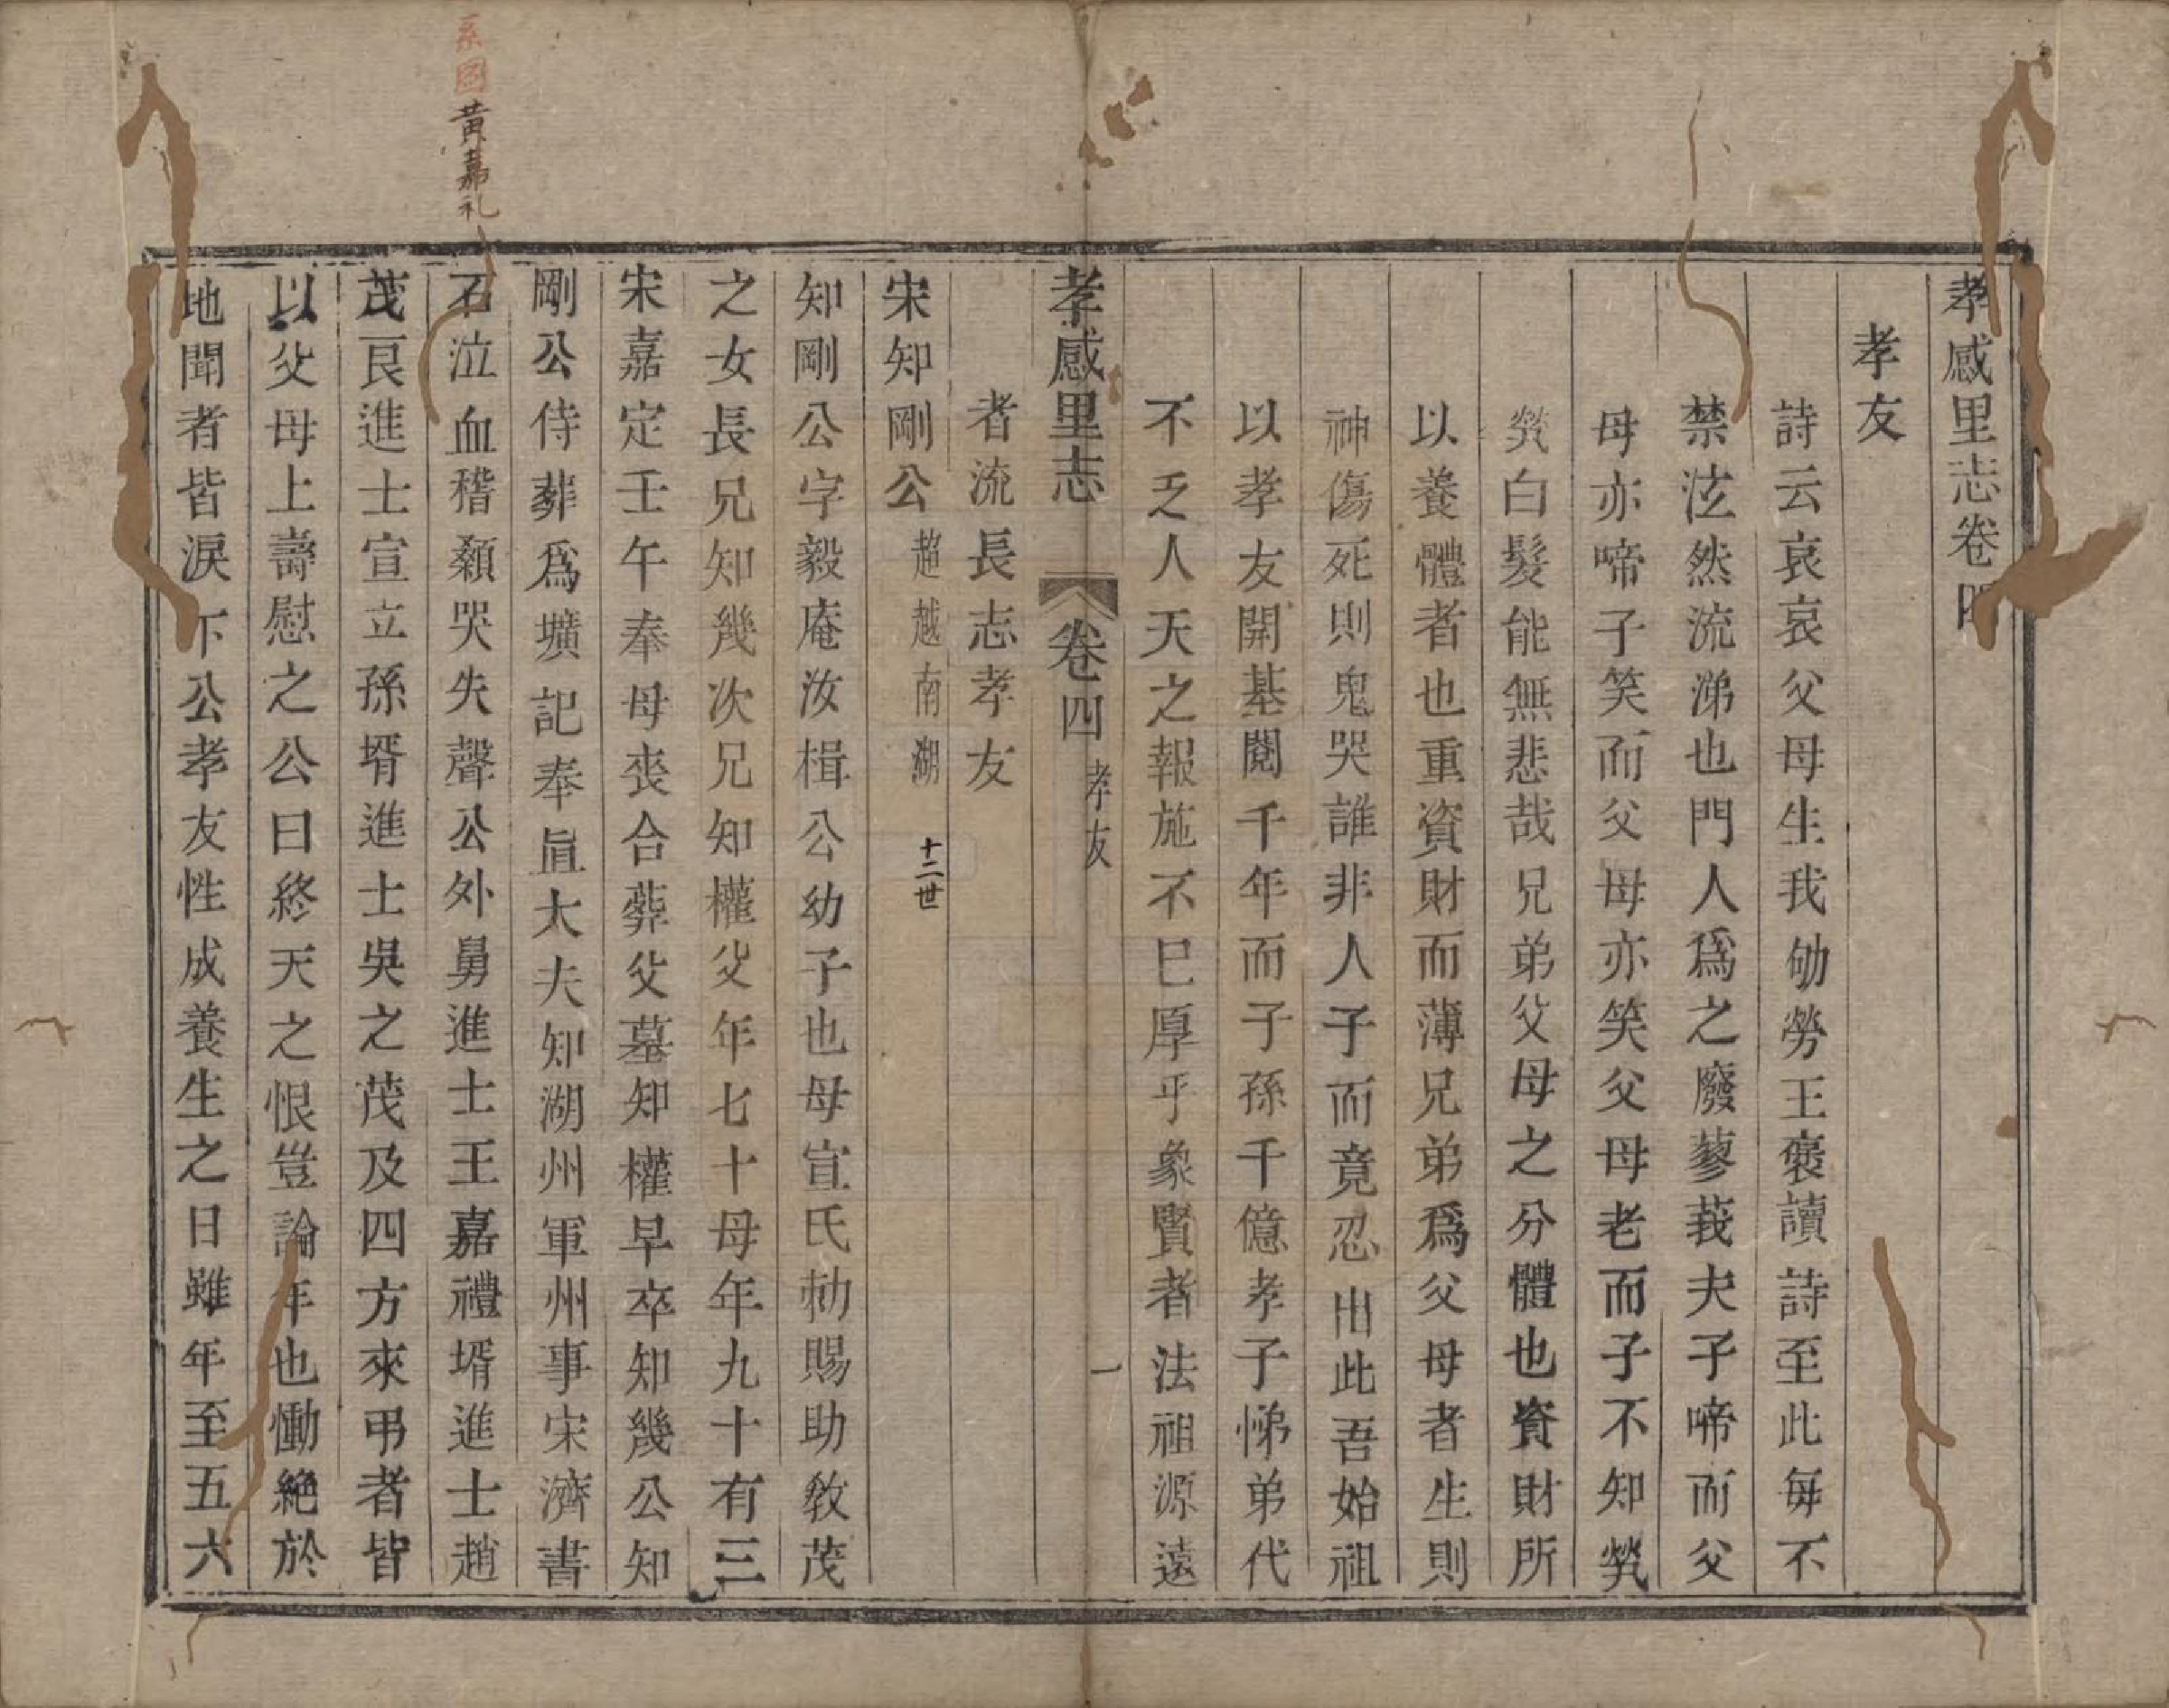 孝感里志卷四
孝友
詩云哀哀父母生我劬勞王裒讀詩至此每不
禁泫然流涕也門人爲之廢蓼莪夫子啼而父
母亦啼子笑而父母亦笑父母老而子不知煢
煢白髮能無悲哉兄弟父母之分體也資財所
以養體者也重資財而薄兄弟爲父母者生則
神傷死則鬼哭誰非人子而竟忍出此吾始祖
以孝友開基閱千年而子孫千億孝子悌弟代
不乏人天之報施不巳厚乎象賢者法祖源遠
孝感里志 卷四 孝友 一
者流長志孝友
宋知剛公 趙越南湖 十二世
知剛公字毅庵汝楫公幼子也母宣氏勑賜助敎茂
之女長兄知幾次兄知權父年七十母年九十有三
宋嘉定壬午奉母喪合葬父墓知權早卒知幾公知
剛公侍葬爲壙記奉直大夫知湖州軍州事宋濟書
石泣血稽顙哭失聲公外舅進士王嘉禮壻進士趙
茂良進士宣立孫壻進士吳之茂及四方來弔者皆
以父母上壽慰之公曰終天之恨豈論年也慟絕於
地聞者皆淚下公孝友性成養生之日雖年至五六
系圖黄嘉礼